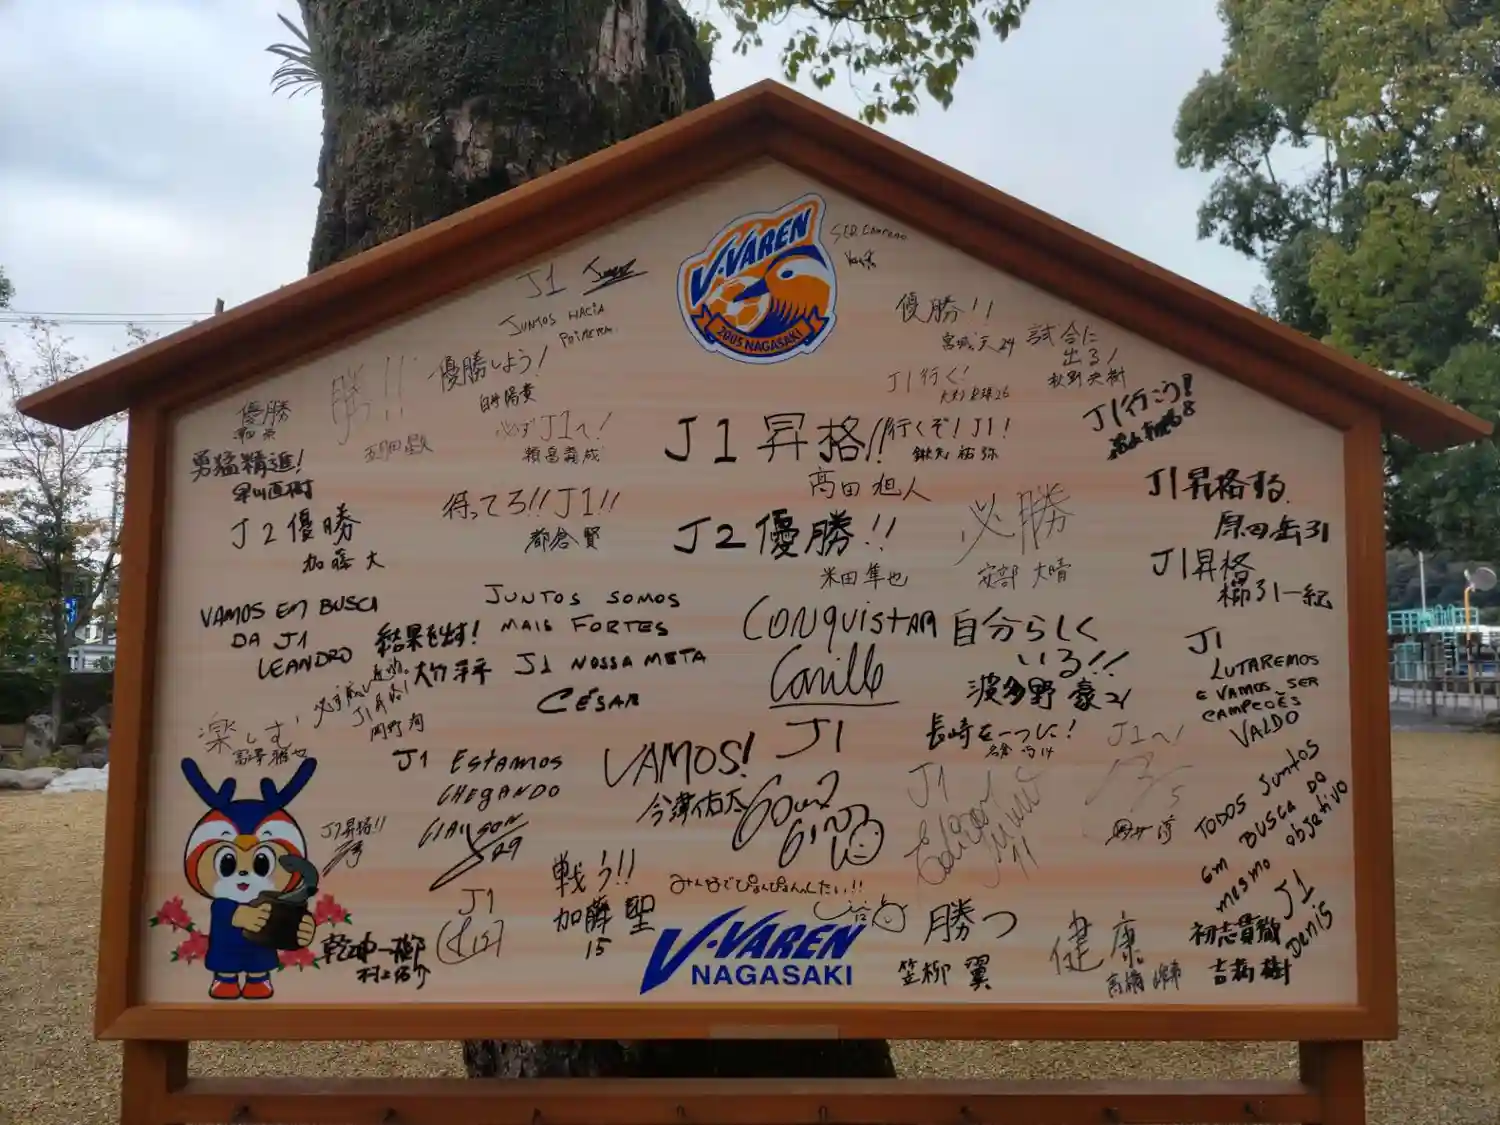 V·VAREN
2005 NAGASAKI
SER CAMPEAO
J1
JUNTOS HACIA
優勝!!
宮城 天 29
試合に
出る!
秋野央樹
優勝しよう!
白井陽貴
勝つ!!
優勝
勇猛精進!
早川直樹
必ずJ1へ!
J1行く!
J1行こう!
J1昇格!!
髙田 旭人
行くぞ!J1!
鍬先 祐弥
J1昇格する
原田岳 31
J2優勝
加藤 大
待ってろ!!J1!!
都倉 賢
J2優勝!!
米田 隼也
必勝
安部 大晴
J1昇格
櫛引一紀
VAMOS EM BUSCA
DA J1
LEANDRO
結果を出す!
大竹洋平
JUNTOS SOMOS
MAIS FORTES
J1 NOSSA META
CÉSAR
CONQUISTAR
Caville
自分らしく
いる!!
波多野 豪 21
J1
LUTAREMOS
E VAMOS SER
CAMPEÕES
VALDO
楽しす
富澤 雅也
J1昇格!
岡野 洵
J1 ESTAMOS
CHEGANDO
CLAYSON
29
VAMOS!
今津佑太
J1
長崎を一つに!
名倉 巧 14
J1
Edigar Junio
11
J1へ!
5
TODOS JUNTOS
EM BUSCA DO
MESMO OBJETIVO
J1
DENIS
J1昇格!!
戦う!!
加藤 聖
15
みんなでぴょんぴょんしたい!!
J1
乾坤一擲
村上佑介
V·VAREN
NAGASAKI
勝つ
笠柳 翼
健康
初志貫徹
吉高 樹